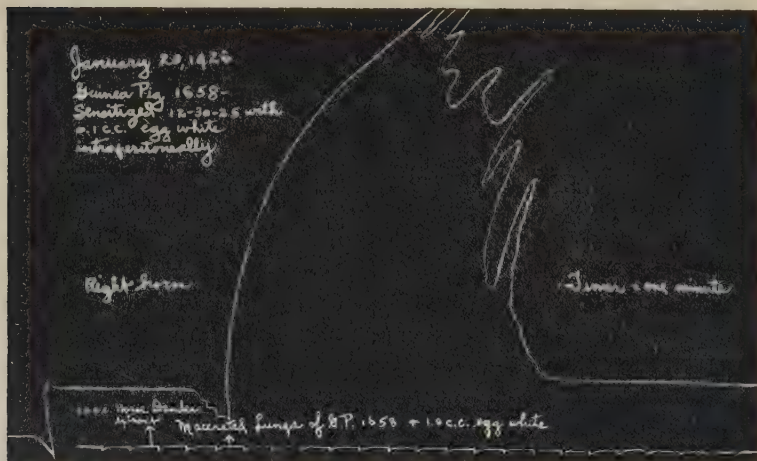 January 20, 1926
Guinea Pig 1658-
Sensitized 12-30-25 with
0.1 c.c. egg white
intraperitoneally
Right horn
Timer = one minute
Horse Dander
extract
Macerated Lungs of G.P. 1658 + 1.0 c.c. egg white